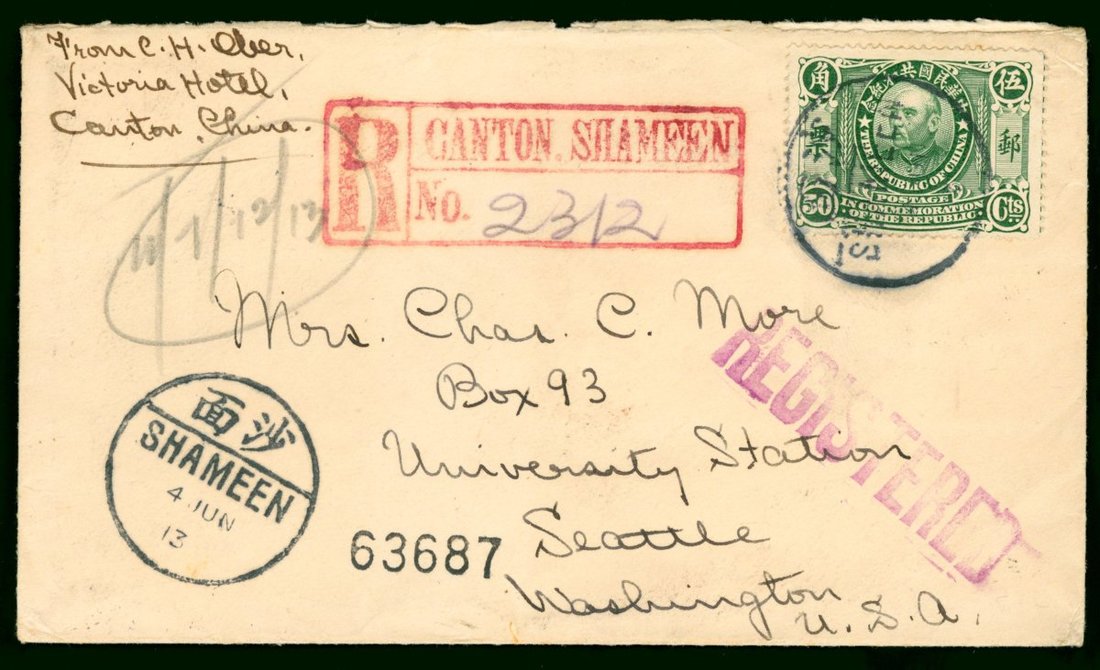 From C. H. Ober,
Victoria Hotel,
Canton, China.
R
CANTON. SHAMEEN
No. 2312
中華民國共和紀念
角
伍
票
郵
THE REPUBLIC OF CHINA
50
POSTAGE
IN COMMEMORATION
OF THE REPUBLIC
Cts
Mrs. Chas. C. More
Box 93
University Station
Seattle
Washington
U. S. A.
REGISTERED
面沙
SHAMEEN
4 JUN
13
63687